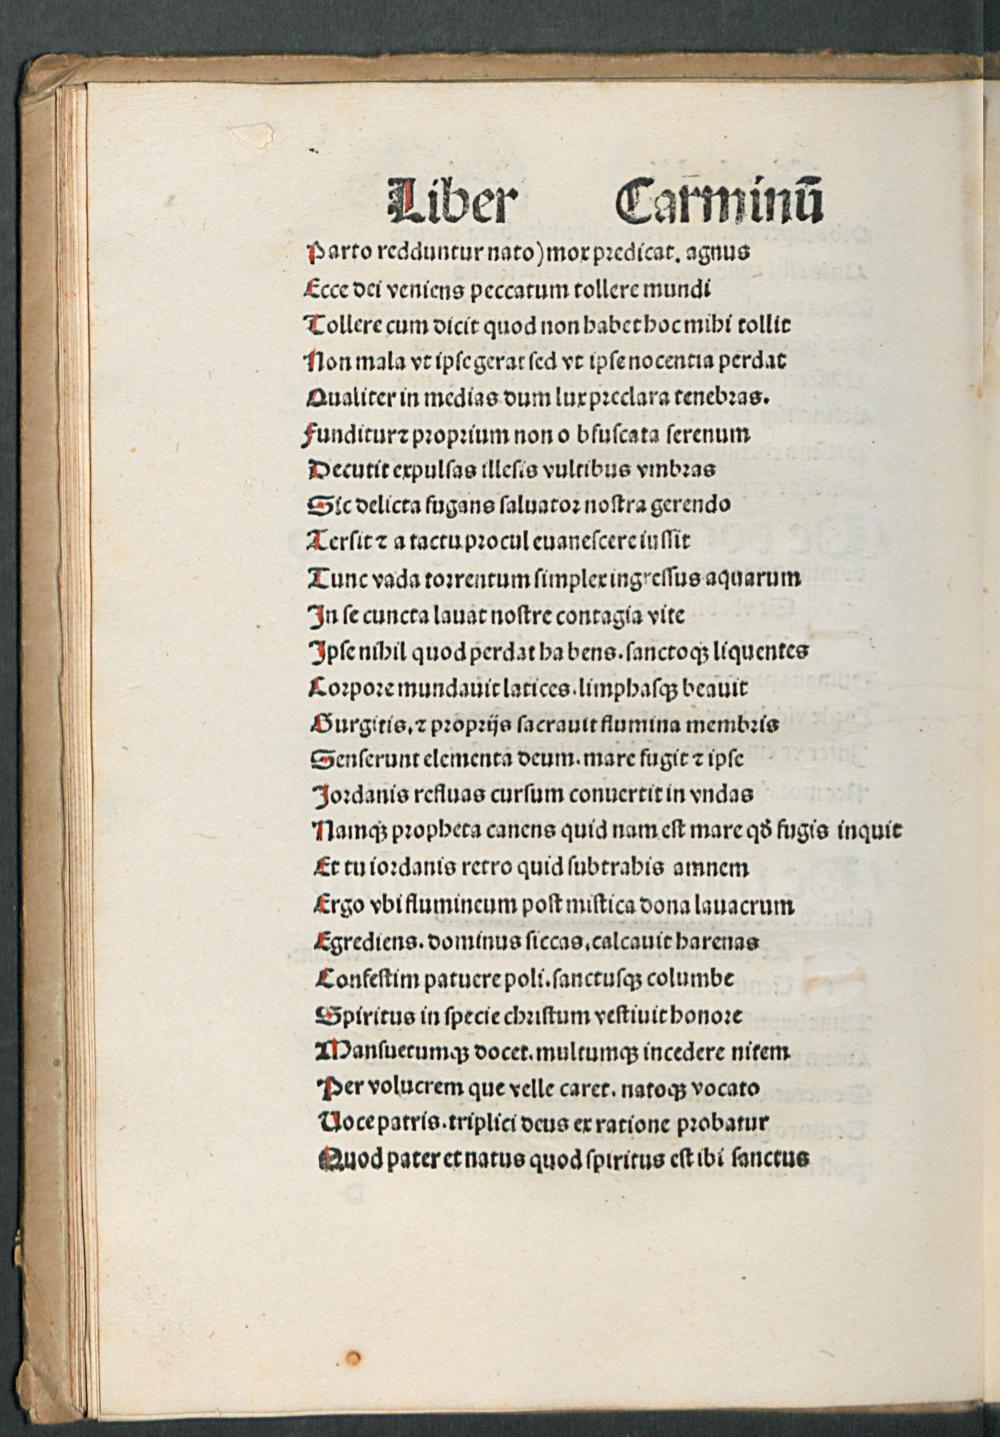 Liber Carminū
Parto redduntur nato) mox predicat. agnus
Ecce dei veniens peccatum tollere mundi
Tollere cum dicit quod non habet hoc mihi tollit
Non mala vt ipse gerat sed vt ipse nocentia perdat
Qualiter in medias dum lux preclara tenebras.
Funditur ⁊ proprium non o bfuscata serenum
Decutit expulsas illesis vultibus vmbras
Sic delicta fugans saluator nostra gerendo
Tersit ⁊ a tactu procul euanescere iussit
Tunc vada torrentum simplex ingressus aquarum
In se cuncta lauat nostre contagia vite
Ipse nihil quod perdat ha bens. sanctoqꝫ liquentes
Corpore mundauit latices. limphasqꝫ beauit
Gurgitis. ⁊ proprijs sacrauit flumina membris
Senserunt elementa deum. mare fugit ⁊ ipse
Jordanis refluas cursum conuertit in vndas
Namqꝫ propheta canens quid nam est mare qđ fugis inquit
Et tu iordanis retro quid subtrahis amnem
Ergo vbi flumineum post mistica dona lauacrum
Egrediens. dominus siccas. calcauit harenas
Confestim patuere poli. sanctusqꝫ columbe
Spiritus in specie christum vestiuit honore
Mansuetumqꝫ docet. multumqꝫ incedere nitem
Per volucrem que velle caret. natoqꝫ vocato
Uoce patris. triplici deus ex ratione probatur
Quod pater et natus quod spiritus est ibi sanctus